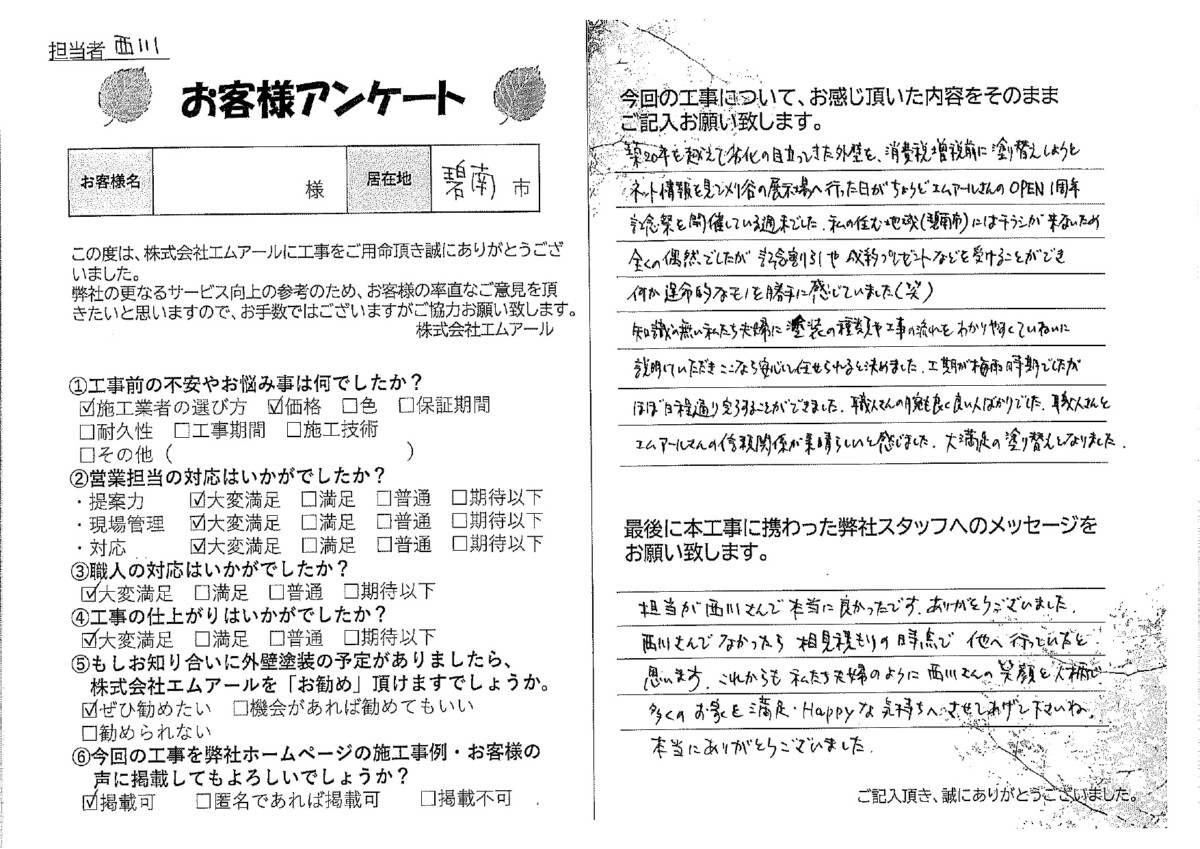 担当者 西川
お客様アンケート
お客様名 様 居在地 碧南 市
この度は、株式会社エムアールに工事をご用命頂き誠にありがとうござ
いました。
弊社の更なるサービス向上の参考のため、お客様の率直なご意見を頂
きたいと思いますので、お手数ではございますがご協力お願い致します。
株式会社エムアール
①工事前の不安やお悩み事は何でしたか?
☑施工業者の選び方 ☑価格 □色 □保証期間
□耐久性 □工事期間 □施工技術
□その他( )
②営業担当の対応はいかがでしたか?
・提案力 ☑大変満足 □満足 □普通 □期待以下
・現場管理 ☑大変満足 □満足 □普通 □期待以下
・対応 ☑大変満足 □満足 □普通 □期待以下
③職人の対応はいかがでしたか?
☑大変満足 □満足 □普通 □期待以下
④工事の仕上がりはいかがでしたか?
☑大変満足 □満足 □普通 □期待以下
⑤もしお知り合いに外壁塗装の予定がありましたら、
株式会社エムアールを「お勧め」頂けますでしょうか。
☑ぜひ勧めたい □機会があれば勧めてもいい
□勧められない
⑥今回の工事を弊社ホームページの施工事例・お客様の
声に掲載してもよろしいでしょうか?
☑掲載可 □匿名であれば掲載可 □掲載不可
今回の工事について、お感じ頂いた内容をそのまま
ご記入お願い致します。
築20年を越えて劣化の目立ってきた外壁を、消費税増税前に塗り替えしようと
ネット情報を見て刈谷の展示場へ行った日がちょうどエムアールさんのOPEN 1周年
記念祭を開催している週末でした。私の住む地域(碧南市)にはチラシが来ないため
全くの偶然でしたが 記念割引や 成約プレゼントなどを受けることができ
何か運命的なモノを勝手に感じていました(笑)
知識の無い私たち夫婦に塗装の種類や工事の流れをわかりやすくていねいに
説明していただきここなら安心して任せられると決めました。工期が梅雨時期でしたが
ほぼ日程通り完了することができました。職人さんの腕も良く良い人ばかりでした。職人さんと
エムアールさんの信頼関係が素晴らしいと感じました。大満足の塗り替えとなりました。
最後に本工事に携わった弊社スタッフへのメッセージを
お願い致します。
担当が西川さんで本当に良かったです。ありがとうございました。
西川さんでなかったら 相見積もりの時点で 他へ行っていたと
思います。これからも 私たち夫婦のように 西川さんの 笑顔と人柄で
多くの お家を 満足・Happyな 気持ちへ させてあげて下さいね。
本当にありがとうございました。
ご記入頂き、誠にありがとうございました。